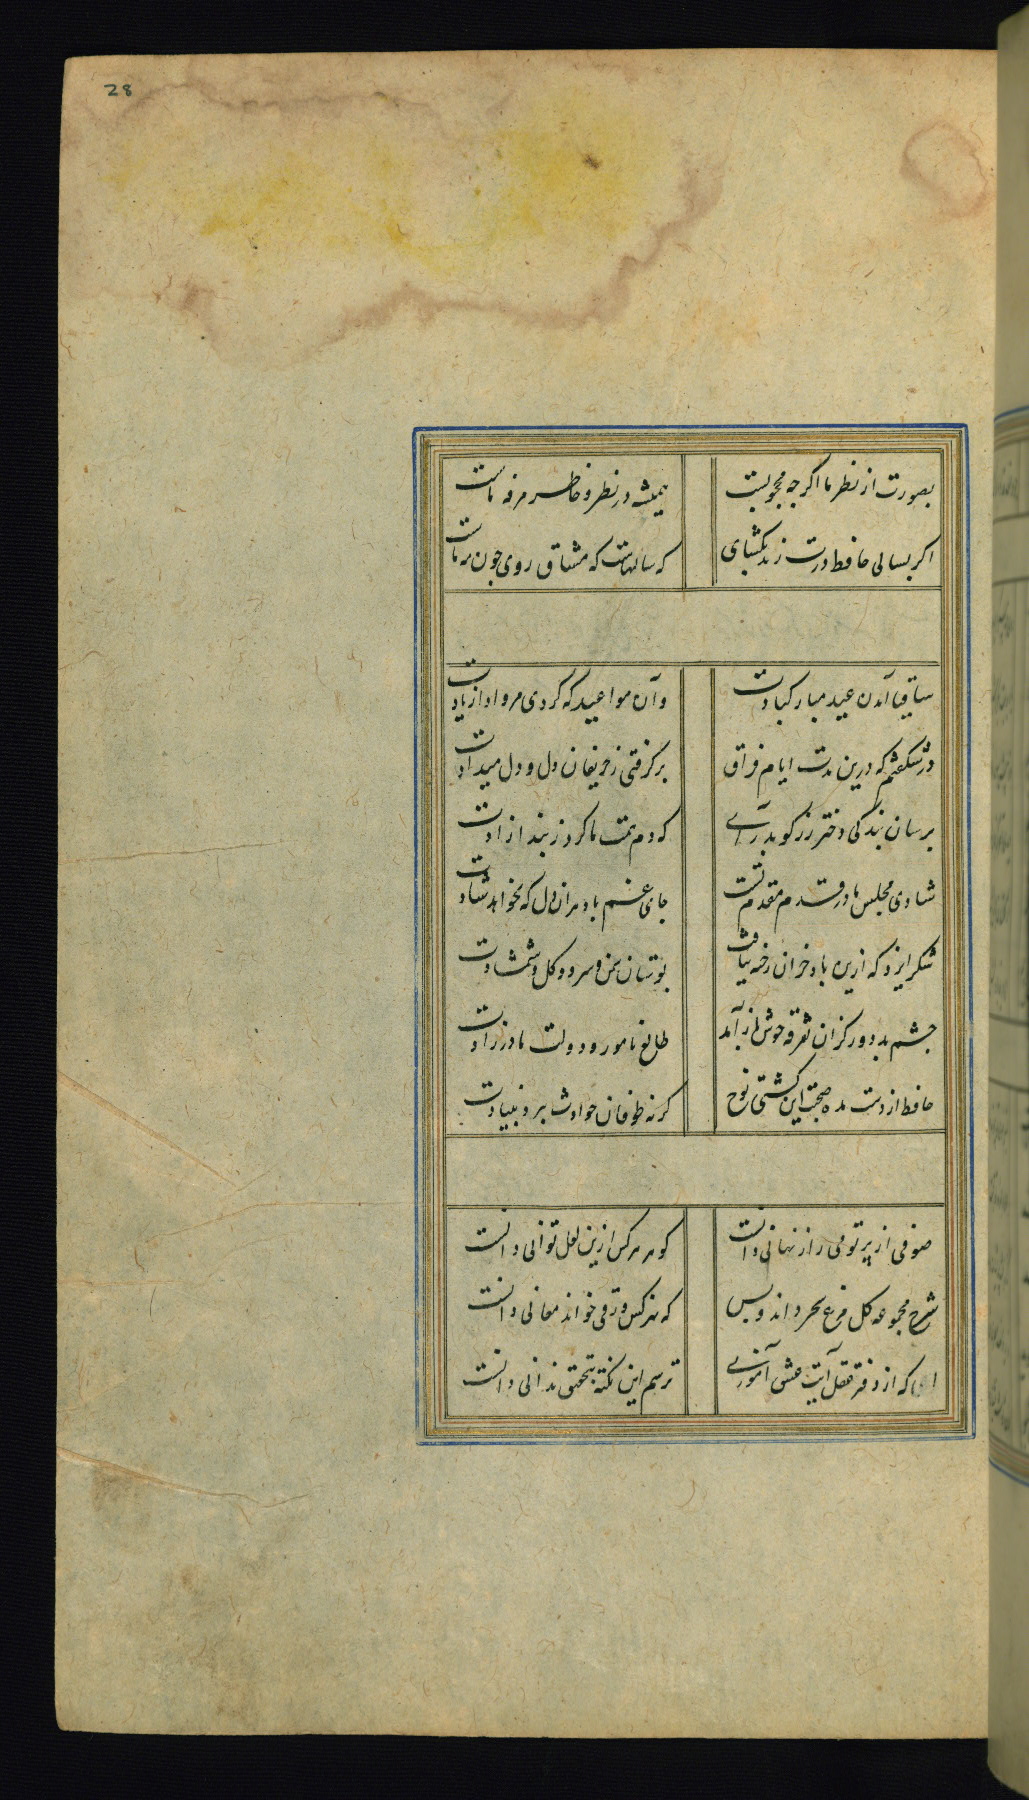 28
بصورت از نظر ما اگرچه محجوبست همیشه در نظر و خاطر مرفه ماست
اگر بسالی حافظ درت زند بگشای که سالهاست که مشتاق روی چون مه ماست
ساقیا آمدن عید مبارک بادت وان مواعید که کردی مرواد از یادت
در شگفتم که درین مدت ایام فراق برگرفتی ز حریفان دل و دل میدادت
برسان بندگی دختر رز گو بدر آی که دم همت ما کرد ز بند ازادت
شادی مجلسیان در قدم مقدم تست جای غم باد مر ان دل که نخواهد شادت
شکر ایزد که ازین باد خزان رخنه نیافت بوستان سمن و سرو و گل و شمشادت
چشم بد دور کزان تفرقه خوش باز آمد طالع نامور و دولت مادرزادت
حافظ از دست مده صحبت این کشتی نوح گرنه طوفان حوادث ببرد بنیادت
صوفی از پرتو می راز نهانی دانست گوهر هر کس ازین لعل توانی دانست
شرح مجموعه گل مرغ سحر داند و بس که نه هر کس ورقی خواند معانی دانست
که از دفتر عقل آیت عشق آموزی ترسم این نکته بتحقیق ندانی دانست